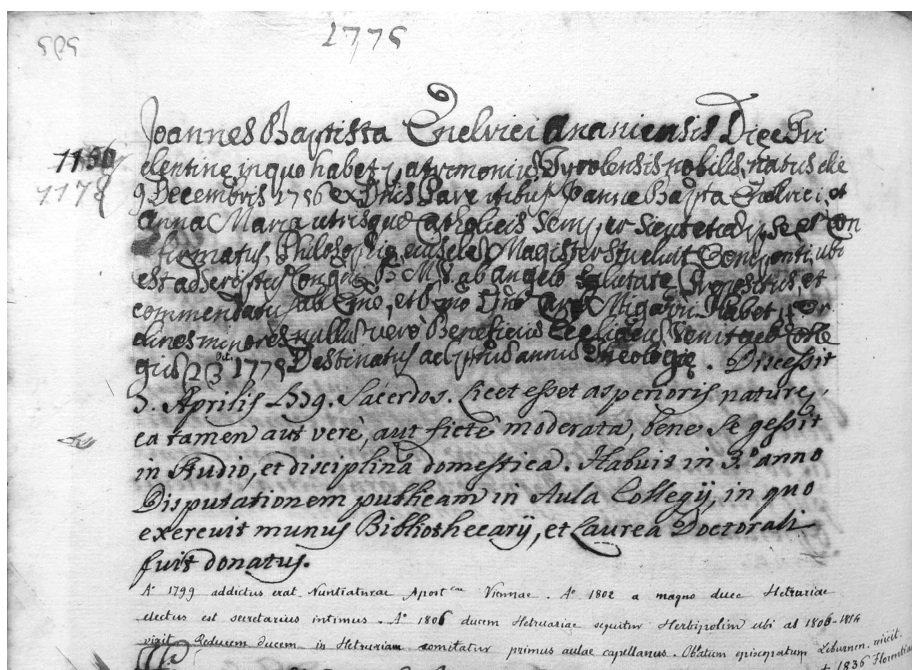 1775
595
Joannes Baptista Enelrici Ananiensis Diec Tri
1156
dentine in quo habet patrimoniũ, Tyrolensis nobilis, natus die
1178
9 Decembris 1756 ex Dnis Parentibus Joanne Bapta Enelrici, et
Anna Maria utrisque Catholicis semper sicut et ad se et con
firmatus, Philosophię eiusdem Magister studuit ubi
est ab Angelo Salutatę propositus et
commendatus ab Emo, et Card Migazzi. Habet or
dines minores nullũ verò Beneficiũ Venit ad Colle
giũ 1775 Destinatus ad annũ Theologię. Discessit
3. Aprilis Sacerdos. Licet esset asperioris naturę,
ea tamen aut verè, aut fictè moderata, bene se gessit
in studio, et disciplina domestica. Habuit in 3.º anno
Disputationem publicam in Aula Collegij, in quo
exercuit munus Bibliothecarij, et Laurea Doctorali
fuit donatus.
Aº 1799 addictus erat Nuntiaturae Apostcae Viennae. Aº 1802 a magno duce Hetruriae
electus est secretarius intimus. Aº 1806 ducem Hetruriae sequitur Herbipolim ubi ad 1806-1814
vixit Reducem ducem in Hetruriam comitatur primus aulae capellanus. Oblatum episcopatum Liburnen. reiicit.
† 1836 Florentiae